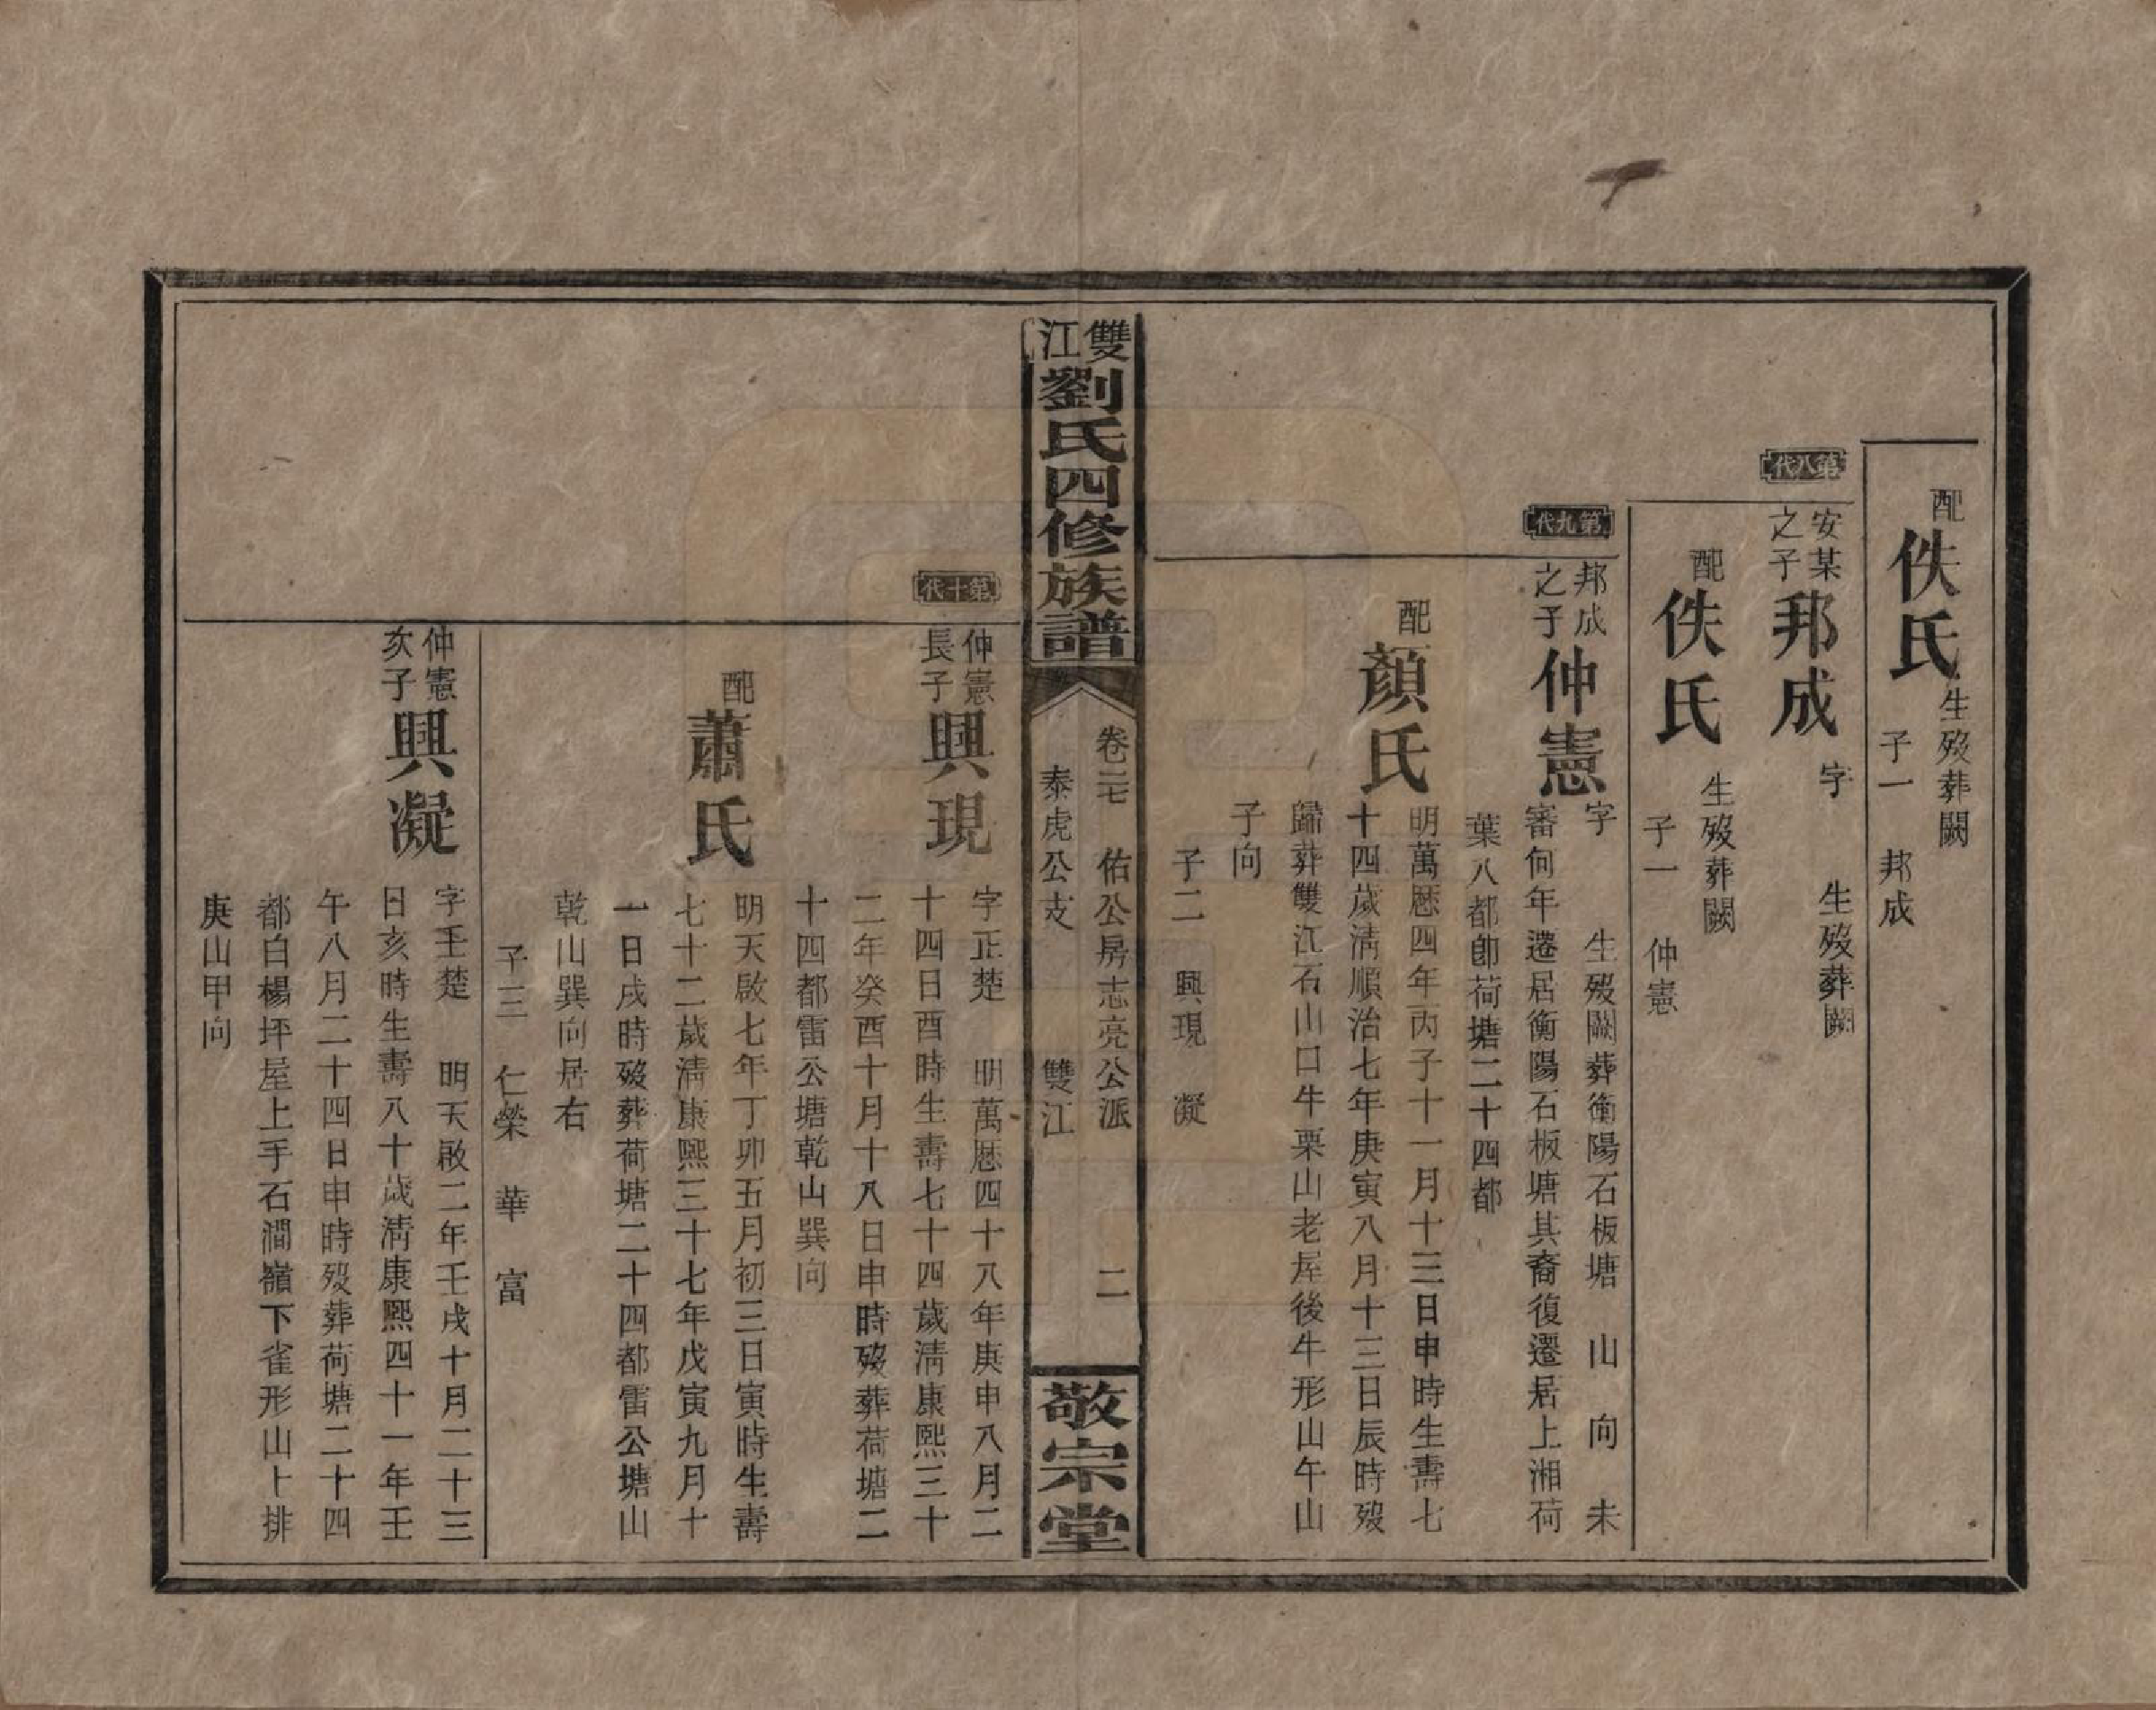 配佚氏生歿葬闕
子一　邦成
第八代
安某之子邦成字　生歿葬闕
配佚氏生歿葬闕
子一　仲憲
第九代
邦成之子仲憲字　生歿闕葬衡陽石板塘　山　向　未
審何年遷居衡陽石板塘其裔復遷居上湘荷
葉八都卽荷塘二十四都
配顏氏明萬厯四年丙子十一月十三日申時生壽七
十四歲淸順治七年庚寅八月十三日辰時歿
歸葬雙江石山口牛栗山老屋後牛形山午山
子向
子二　興現　凝
雙江劉氏四修族譜
卷二七　佑公房志亮公派　二
泰虎公支　雙江
敬宗堂
第十代
仲憲長子興現字正楚　明萬厯四十八年庚申八月二
十四日酉時生壽七十四歲淸康熙三十
二年癸酉十月十八日申時歿葬荷塘二
十四都雷公塘乾山巽向
配蕭氏明天啟七年丁卯五月初三日寅時生壽
七十二歲淸康熙三十七年戊寅九月十
一日戌時歿葬荷塘二十四都雷公塘山
乾山巽向居右
子三　仁榮　華　富
仲憲次子興凝字壬楚　明天啟二年壬戌十月二十三
日亥時生壽八十歲淸康熙四十一年壬
午八月二十四日申時歿葬荷塘二十四
都白楊坪屋上手石澗嶺下雀形山上排
庚山甲向